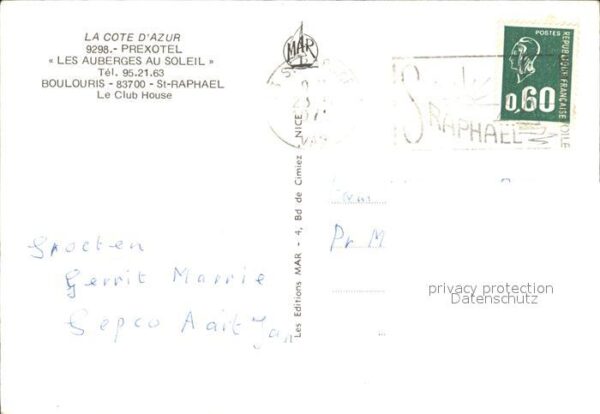 LA COTE D'AZUR
9298.- PREXOTEL
« LES AUBERGES AU SOLEIL »
Tél. 95.21.63
BOULOURIS - 83700 - St-RAPHAEL
Le Club House
MAR
Les Editions MAR - 4, Bd de Cimiez, NICE
VAR
St RAPHAEL
POSTES
REPUBLIQUE FRANÇAISE
0,60
Fam
Pr M
Groeten
Gerrit Marrie
Gepco Aait Jan
privacy protection
Datenschutz